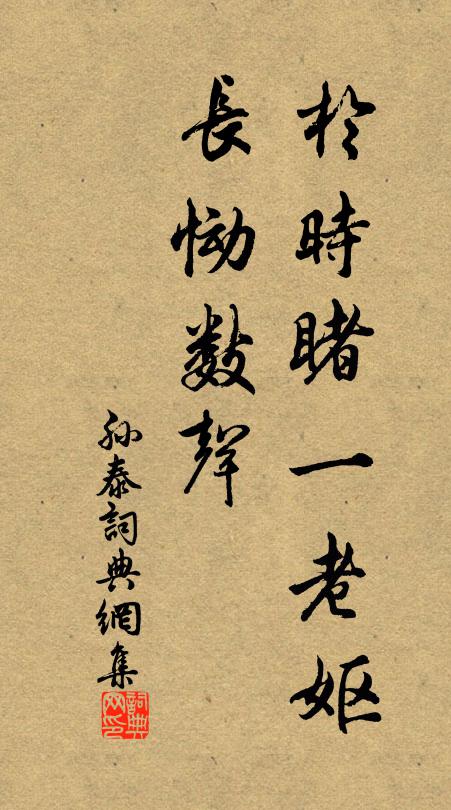 於時睹一老嫗
長慟數聲
孙泰詞典網集
詞典网印